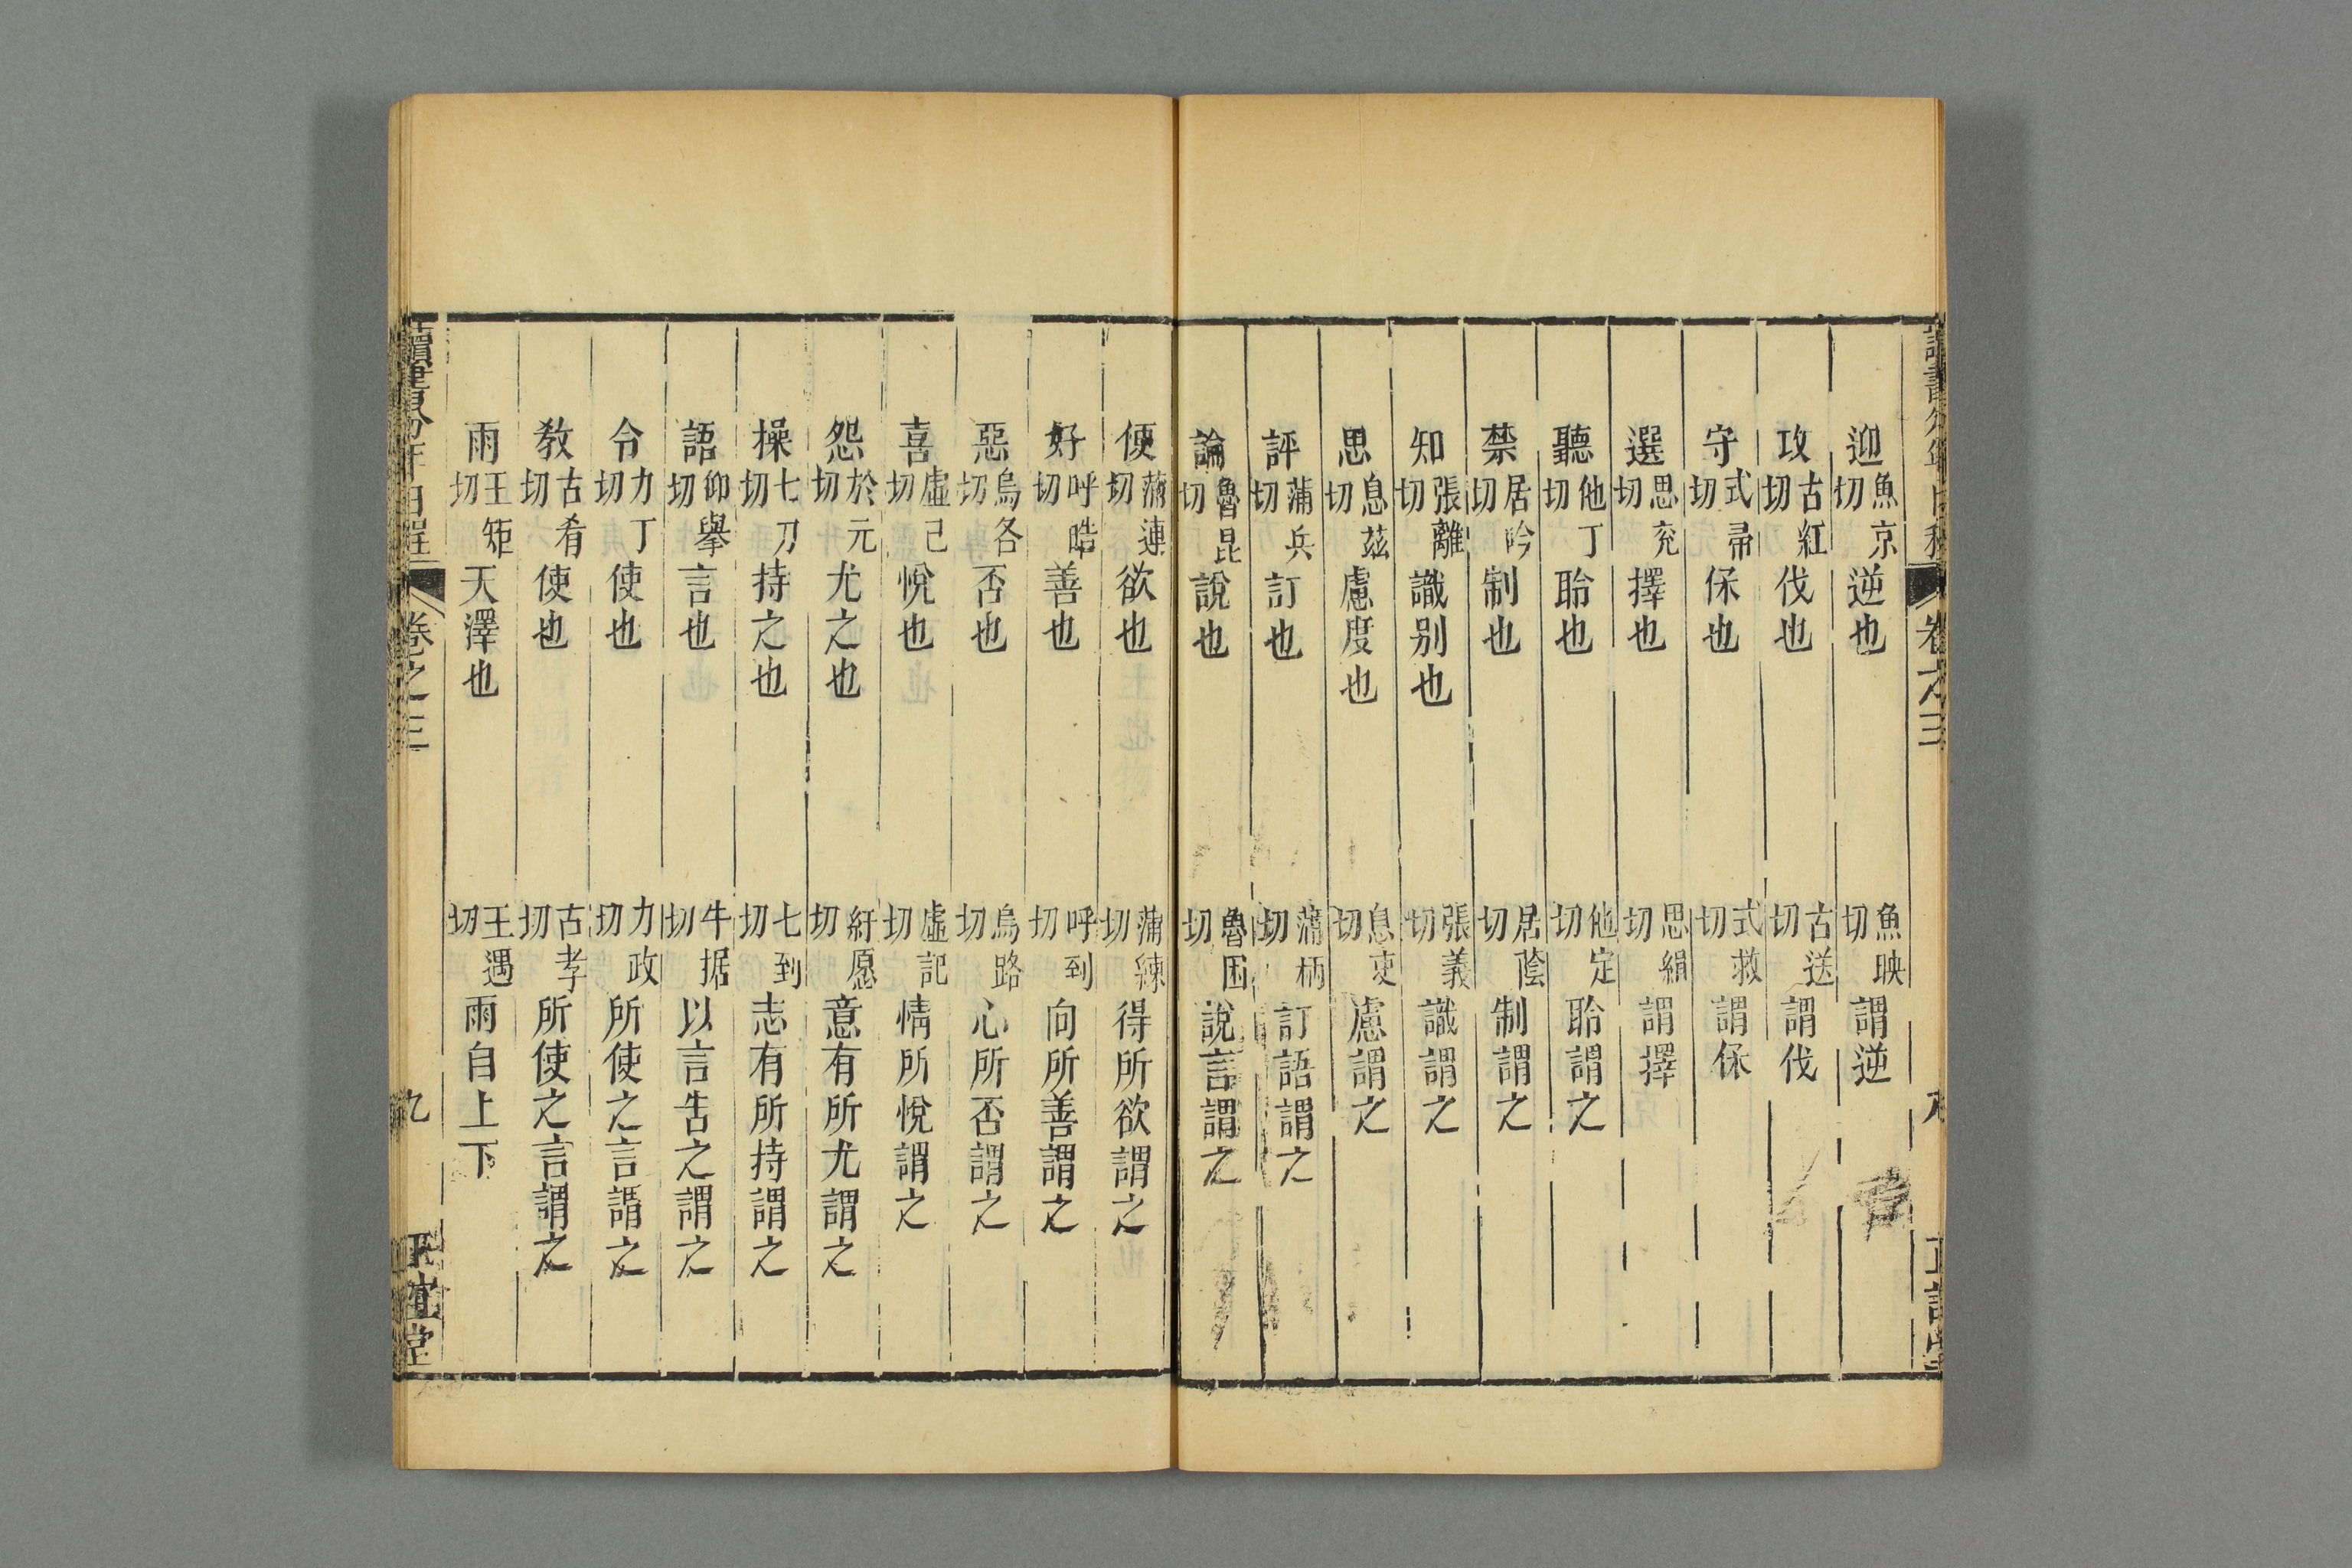 讀書分年日程 卷之三 八 正誼堂
迎魚京切逆也 魚映切謂逆
攻古紅切伐也 古送切謂伐
守式帚切保也 式救切謂保
選思兖切擇也 思絹切謂擇
聽他丁切聆也 他定切聆謂之
禁居吟切制也 居蔭切制謂之
知張離切識别也 張義切識謂之
思息兹切慮度也 息吏切慮謂之
評蒲兵切訂也 蒲柄切訂語謂之
論魯昆切說也 魯困切說言謂之
便蒲連切欲也 蒲練切得所欲謂之
好呼晧切善也 呼到切向所善謂之
惡烏各切否也 烏路切心所否謂之
喜虛己切悅也 虛記切情所悅謂之
怨於元切尤之也 紆愿切意有所尤謂之
操七刀切持之也 七到切志有所持謂之
語仰舉切言也 牛据切以言告之謂之
令力丁切使也 力政切所使之言謂之
教古肴切使也 古孝切所使之言謂之
雨王矩切天澤也 王遇切雨自上下
讀書分年日程 卷之三 九 正誼堂